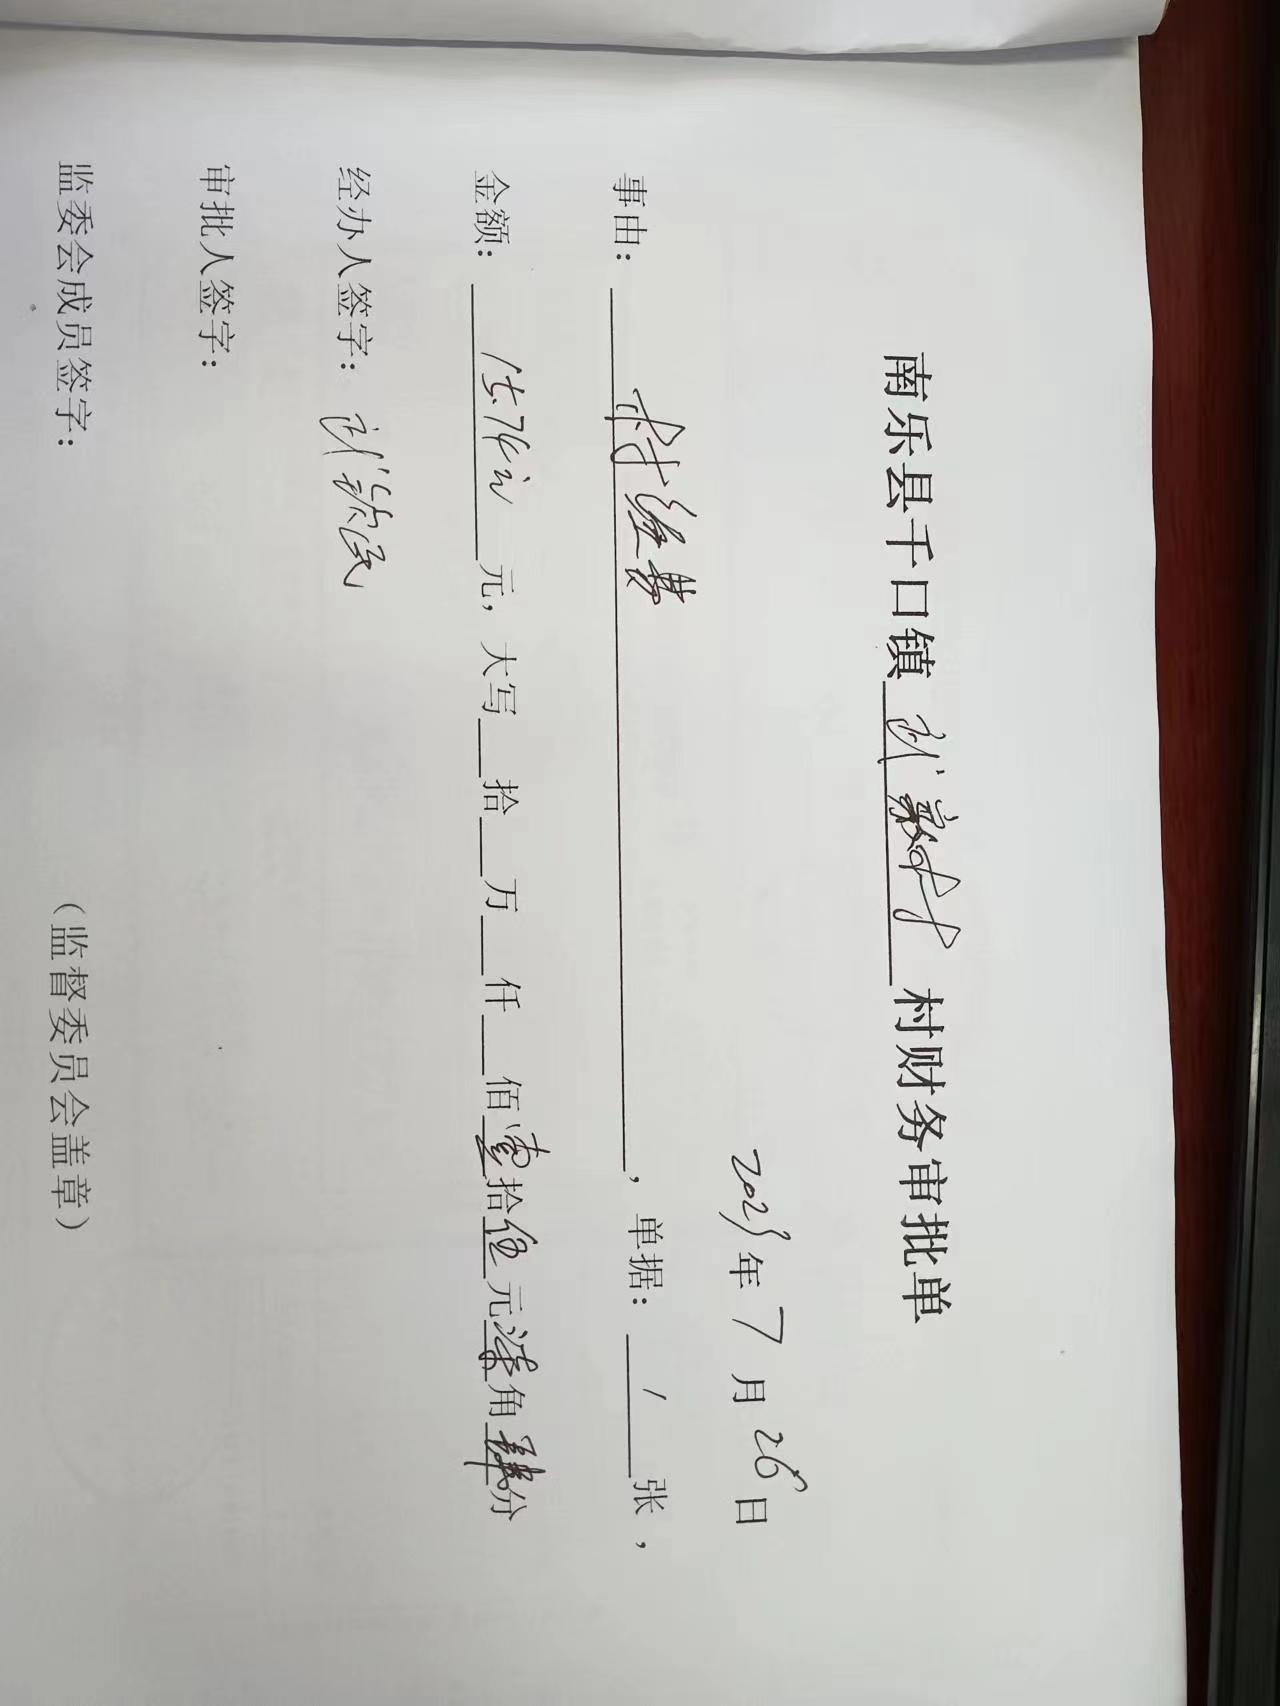 南乐县千口镇 家村 村财务审批单
年7月26日
事由：村经费，单据：1张，
金额：15.74元 元，大写 拾 万 仟 佰壹拾伍元柒角肆分
经办人签字：
审批人签字：
监委会成员签字： （监督委员会盖章）